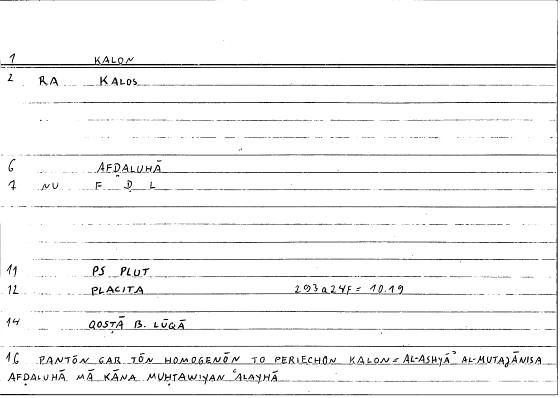 1 KALON
2 RA KALOS
6 AFḌALUHĀ
7 NU F Ḍ L
11 PS PLUT
12 PLACITA 293a24F = 10.19
14 QOSṬĀ B. LŪQĀ
16 PANTŌN GAR TŌN HOMOGENŌN TO PERIECHON KALON = AL-ASHYĀʾ AL-MUTAǧĀNISA
AFḌALUHĀ MĀ KĀNA MUḤTAWIYAN ʿALAYHĀ